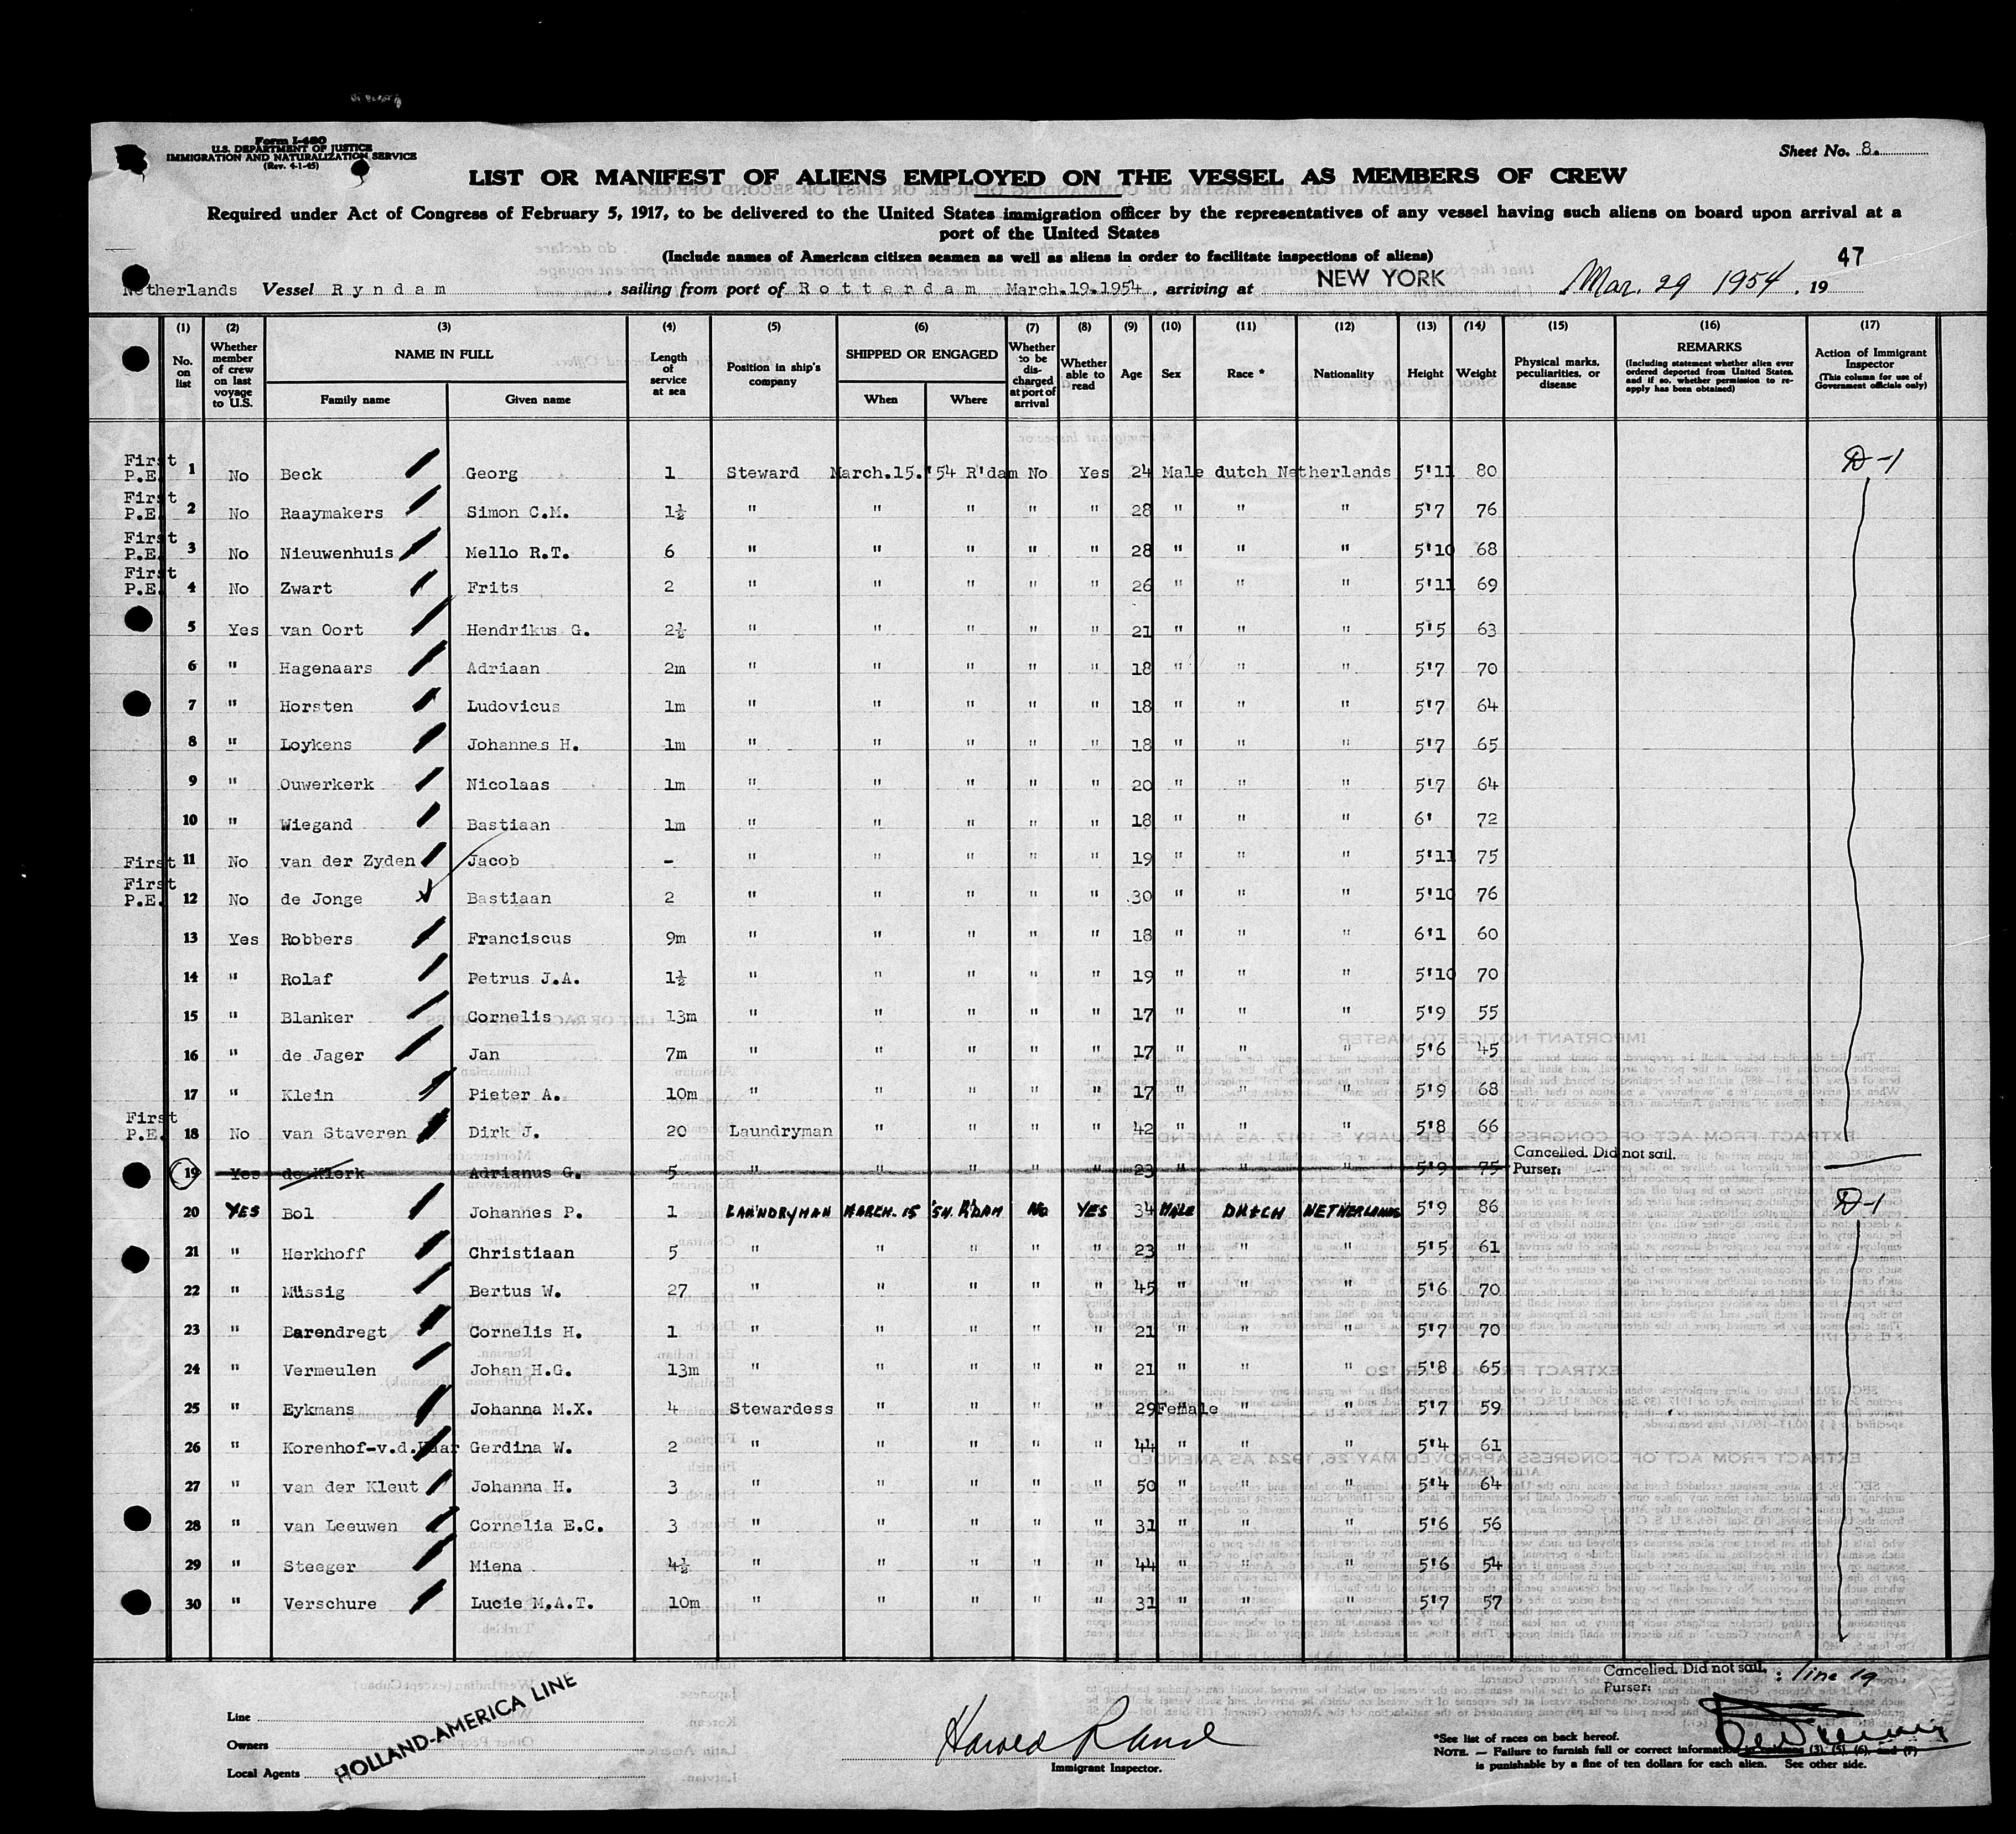 Form I-480
U.S. DEPARTMENT OF JUSTICE
IMMIGRATION AND NATURALIZATION SERVICE
(Rev. 4-1-45)
Sheet No. 8.
LIST OR MANIFEST OF ALIENS EMPLOYED ON THE VESSEL AS MEMBERS OF CREW
Required under Act of Congress of February 5, 1917, to be delivered to the United States immigration officer by the representatives of any vessel having such aliens on board upon arrival at a
port of the United States
(Include names of American citizen seamen as well as aliens in order to facilitate inspections of aliens)
47
Netherlands Vessel Ryndam, sailing from port of Rotterdam March.19.1954, arriving at NEW YORK Mar. 29 1954, 19
(1) (2) (3) (4) (5) (6) (7) (8) (9) (10) (11) (12) (13) (14) (15) (16) (17)
No. on list
Whether member of crew on last voyage to U.S.
NAME IN FULL
Family name
Given name
Length of service at sea
Position in ship's company
SHIPPED OR ENGAGED
When
Where
Whether to be discharged at port of arrival
Whether able to read
Age
Sex
Race *
Nationality
Height
Weight
Physical marks, peculiarities, or disease
REMARKS
(Including statement whether alien ever ordered deported from United States, and if so, whether permission to reapply has been obtained)
Action of Immigrant Inspector
(This column for use of Government officials only)
First P.E. 1 No Beck Georg 1 Steward March.15.'54 R'dam No Yes 24 Male dutch Netherlands 5'11 80 D-1
First P.E. 2 No Raaymakers Simon C.M. 1½ " " " " " 28 " " " 5'7 76
First P.E. 3 No Nieuwenhuis Mello R.T. 6 " " " " " 28 " " " 5'10 68
First P.E. 4 No Zwart Frits 2 " " " " " 26 " " " 5'11 69
5 Yes van Oort Hendrikus G. 2½ " " " " " 21 " " " 5'5 63
6 " Hagenaars Adriaan 2m " " " " " 18 " " " 5'7 70
7 " Horsten Ludovicus 1m " " " " " 18 " " " 5'7 64
8 " Loykens Johannes H. 1m " " " " " 18 " " " 5'7 65
9 " Ouwerkerk Nicolaas 1m " " " " " 20 " " " 5'7 64
10 " Wiegand Bastiaan 1m " " " " " 18 " " " 6' 72
First 11 No van der Zyden Jacob - " " " " " 19 " " " 5'11 75
First P.E. 12 No de Jonge Bastiaan 2 " " " " " 30 " " " 5'10 76
13 Yes Robbers Franciscus 9m " " " " " 18 " " " 6'1 60
14 " Rolaf Petrus J.A. 1½ " " " " " 19 " " " 5'10 70
15 " Blanker Cornelis 13m " " " " " 17 " " " 5'9 55
16 " de Jager Jan 7m " " " " " 17 " " " 5'6 45
17 " Klein Pieter A. 10m " " " " " 17 " " " 5'9 68
First P.E. 18 No van Staveren Dirk J. 20 Laundryman " " " " 42 " " " 5'8 66
19 Yes de Klerk Adrianus G. 5 " " " " " 23 " " " 5'9 75 Cancelled. Did not sail.
Purser:
20 YES Bol Johannes P. 1 LAUNDRYMAN MARCH.15 '54. R'DAM No YES 34 MALE DUTCH NETHERLANDS 5'9 86 D-1
21 " Herkhoff Christiaan 5 " " " " " 23 " " " 5'5 61
22 " Müssig Bertus W. 27 " " " " " 45 " " " 5'6 70
23 " Barendregt Cornelis H. 1 " " " " " 21 " " " 5'7 70
24 " Vermeulen Johan H.G. 13m " " " " " 21 " " " 5'8 65
25 " Eykmans Johanna M.X. 4 Stewardess " " " " 29 Female " " 5'7 59
26 " Korenhof-v.d.Haar Gerdina W. 2 " " " " " 44 " " " 5'4 61
27 " van der Kleut Johanna H. 3 " " " " " 50 " " " 5'4 64
28 " van Leeuwen Cornelia E.C. 3 " " " " " 31 " " " 5'6 56
29 " Steeger Miena 4½ " " " " " 44 " " " 5'6 54
30 " Verschure Lucie M.A.T. 10m " " " " " 31 " " " 5'7 57
Cancelled. Did not sail. : line 19
Purser:
Line
Owners
Local Agents
HOLLAND-AMERICA LINE
Harold
Immigrant Inspector.
*See list of races on back hereof.
NOTE. — Failure to furnish full or correct information (3), (5), (6), and (7)
is punishable by a fine of ten dollars for each alien. See other side.